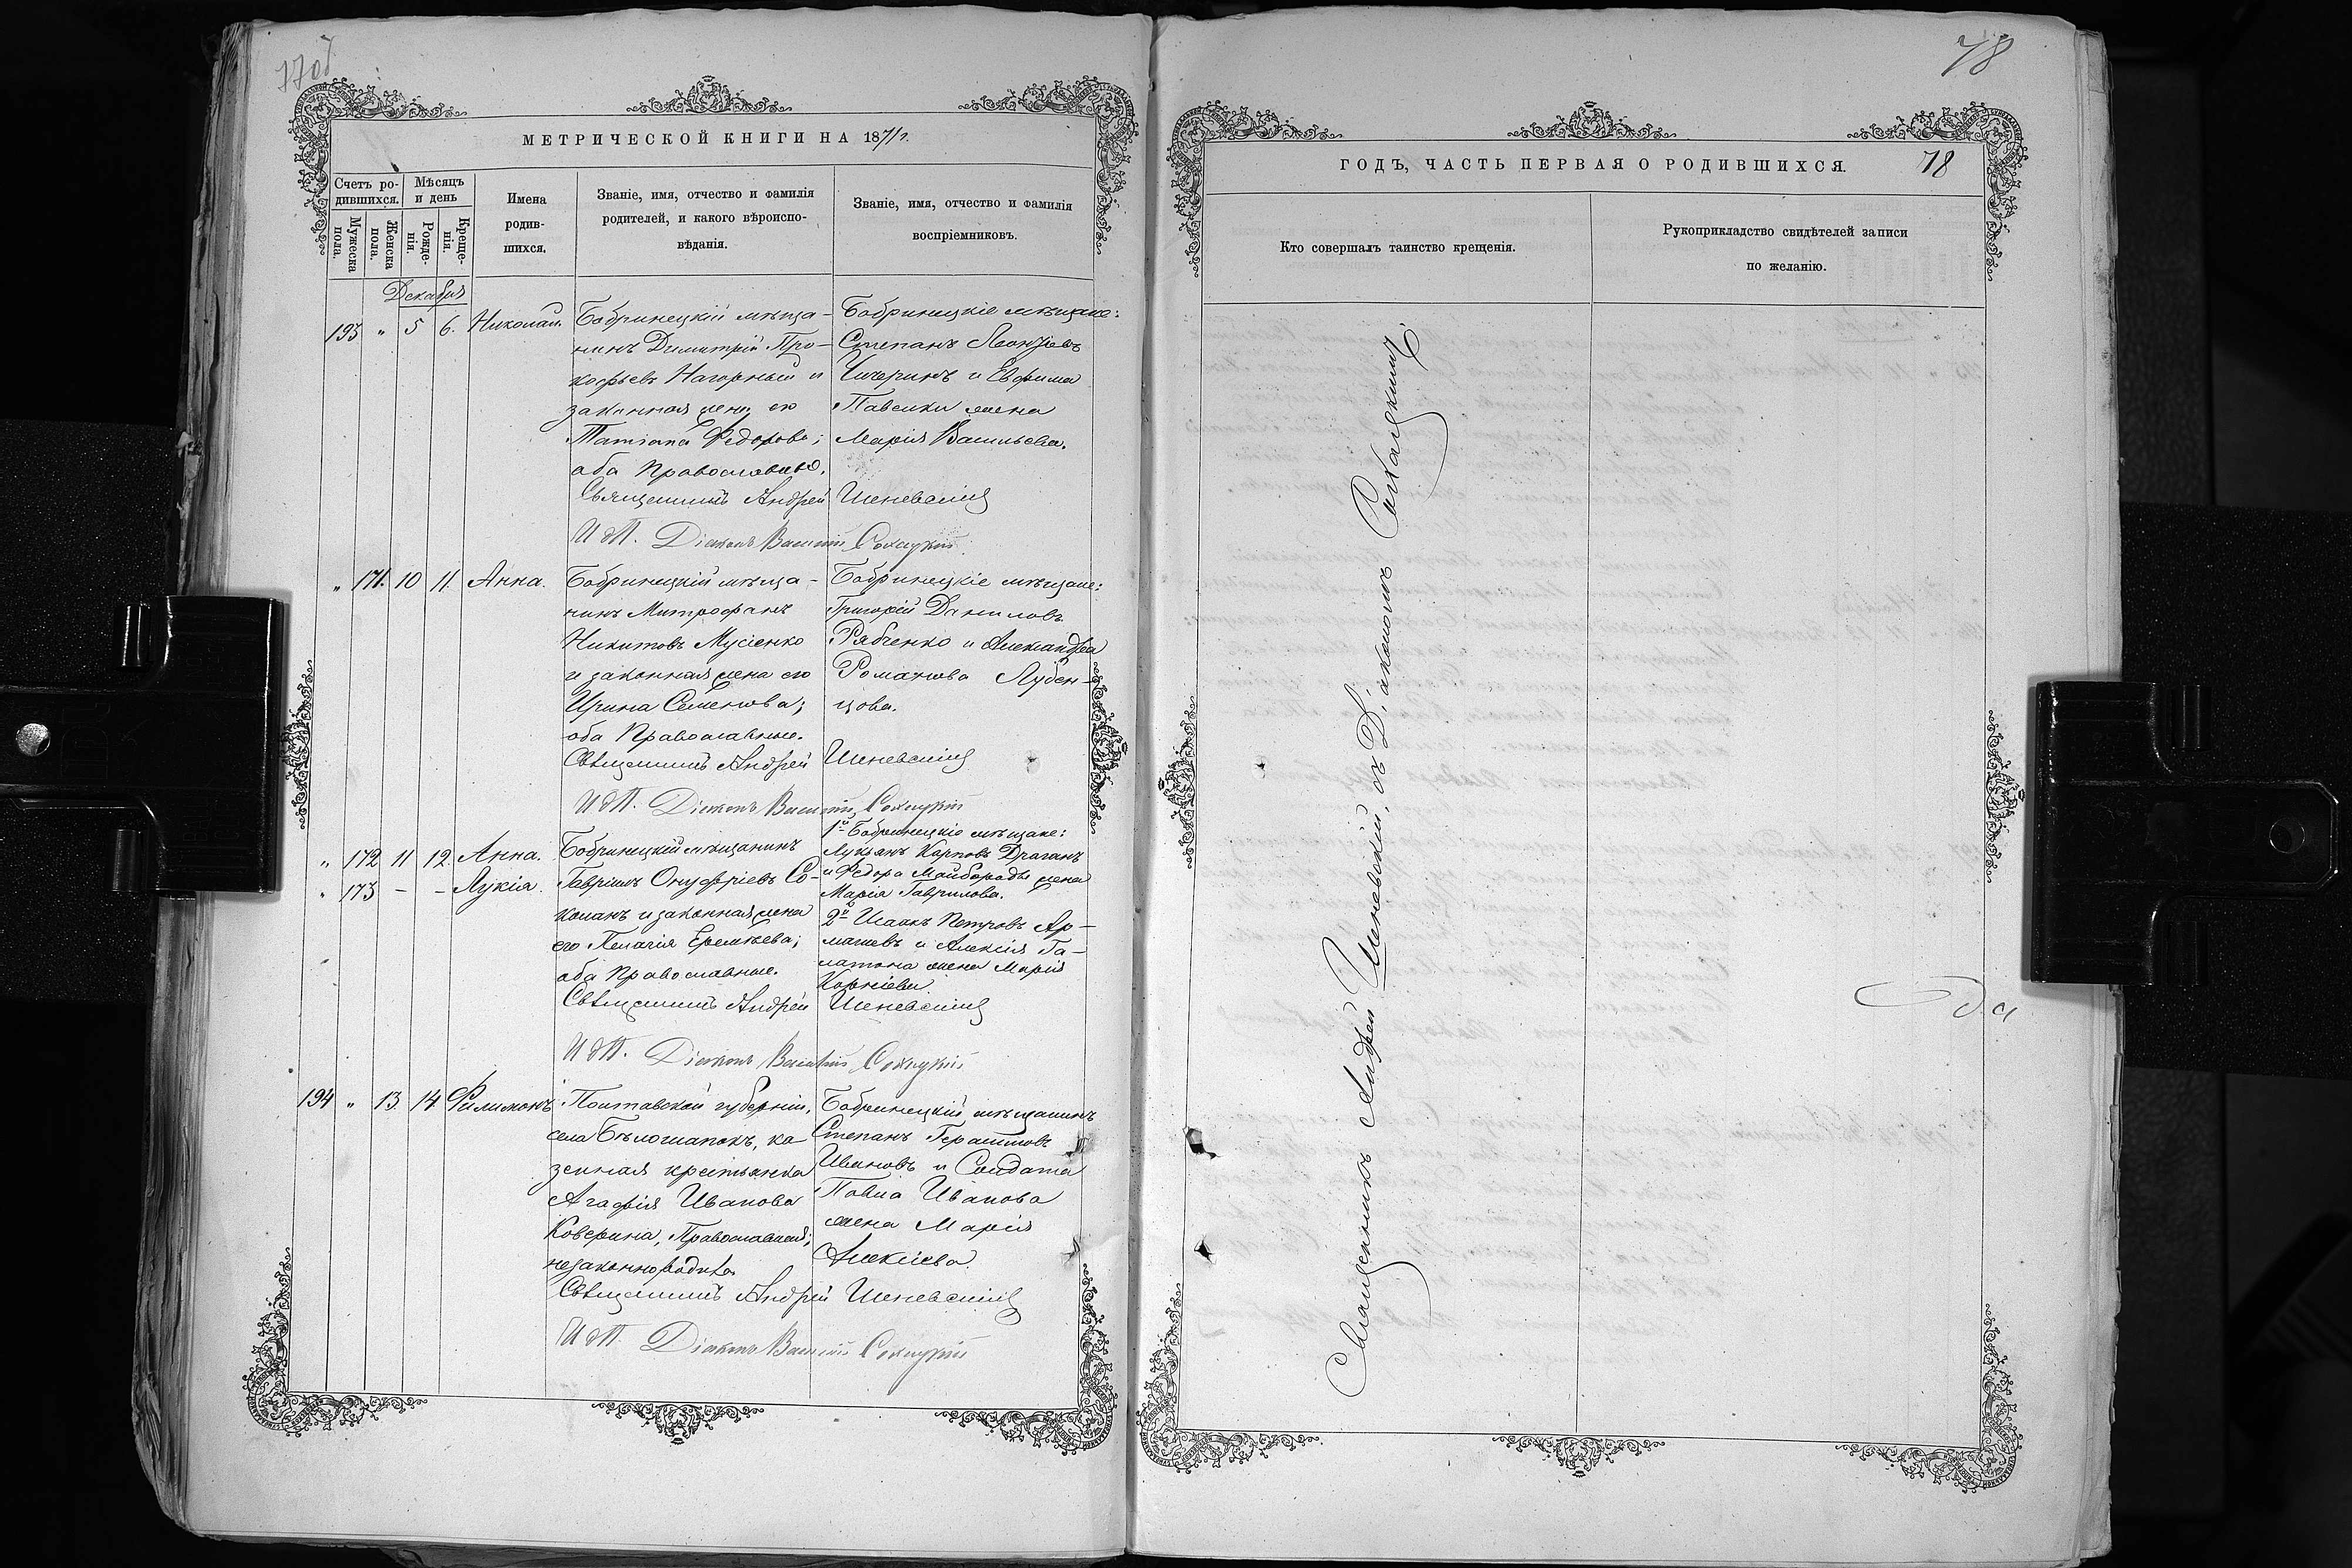 78
МЕТРИЧЕСКОЙ КНИГИ НА 1871 г.
Счетъ ро-
дившихся.
Мѣсяцъ
и день
Мужеска
пола.
Женска
пола.
Рожде-
нія.
Креще-
нія.
Имена
родив-
шихся.
Званіе, имя, отчество и фамилія
родителей, и какого вѣроиспо-
вѣданія.
Званіе, имя, отчество и фамилія
воспріемниковъ.
Декабрь
193 " 5 6. Николай.
Бобринецкій мѣща-
нинъ Димитрій Про-
кофьевъ Нагорный и
законная жена его
Татіана Федорова;
оба Православные.
Бобринецкіе мѣщане:
Степанъ Леонтьевъ
Чичеринъ и Евфима
жена
Марія Васильева.
Священникъ Андрей Шеневскій
И д П. Діаконъ Василій
" 171. 10 11. Анна.
Бобринецкій мѣща-
нинъ Митрофанъ
Никитовъ Мусіенко
и законная жена его
Ирина Семенова;
оба Православные.
Бобринецкіе мѣщане:
Григорій Даниловъ
Рябченко и Александра
Романова Лубен-
цова.
Священникъ Андрей Шеневскій
И д П. Діаконъ Василій
" 172 11 12. Анна.
" 173 - - Лукія.
Бобринецкій мѣщанинъ
Гавріилъ Онуфріевъ Со-
колань и законная жена
его Пелагія Еремѣева;
оба Православные.
1й Бобринецкіе мѣщане:
Лукьянъ Карповъ Драганъ
и Федора Майбороды жена
Марія Гаврилова.
2й Исаакъ Петровъ Ар-
машевъ и Алексія Га-
латона жена Марія
Корніева
Священникъ Андрей Шеневскій
И д П. Діаконъ Василій
194 " 13. 14 Филимонъ
Полтавской губерніи,
села Бѣлошапокъ, ка
зенная крестьянка
Агафія Иванова
Коверина, Православная;
незаконнорожд.
Бобринецкій мѣщанинъ
Степанъ Герасимовъ
Ивановъ и Солдата
Павла Иванова
жена Марія
Алексіева
Священникъ Андрей Шеневскій
И д П. Діаконъ Василій
ГОДЪ, ЧАСТЬ ПЕРВАЯ О РОДИВШИХСЯ. 78
Кто совершалъ таинство крещенія.
Рукоприкладство свидѣтелей записи
по желанію.
Священникъ Андрей Шеневскій, съ Діакономъ